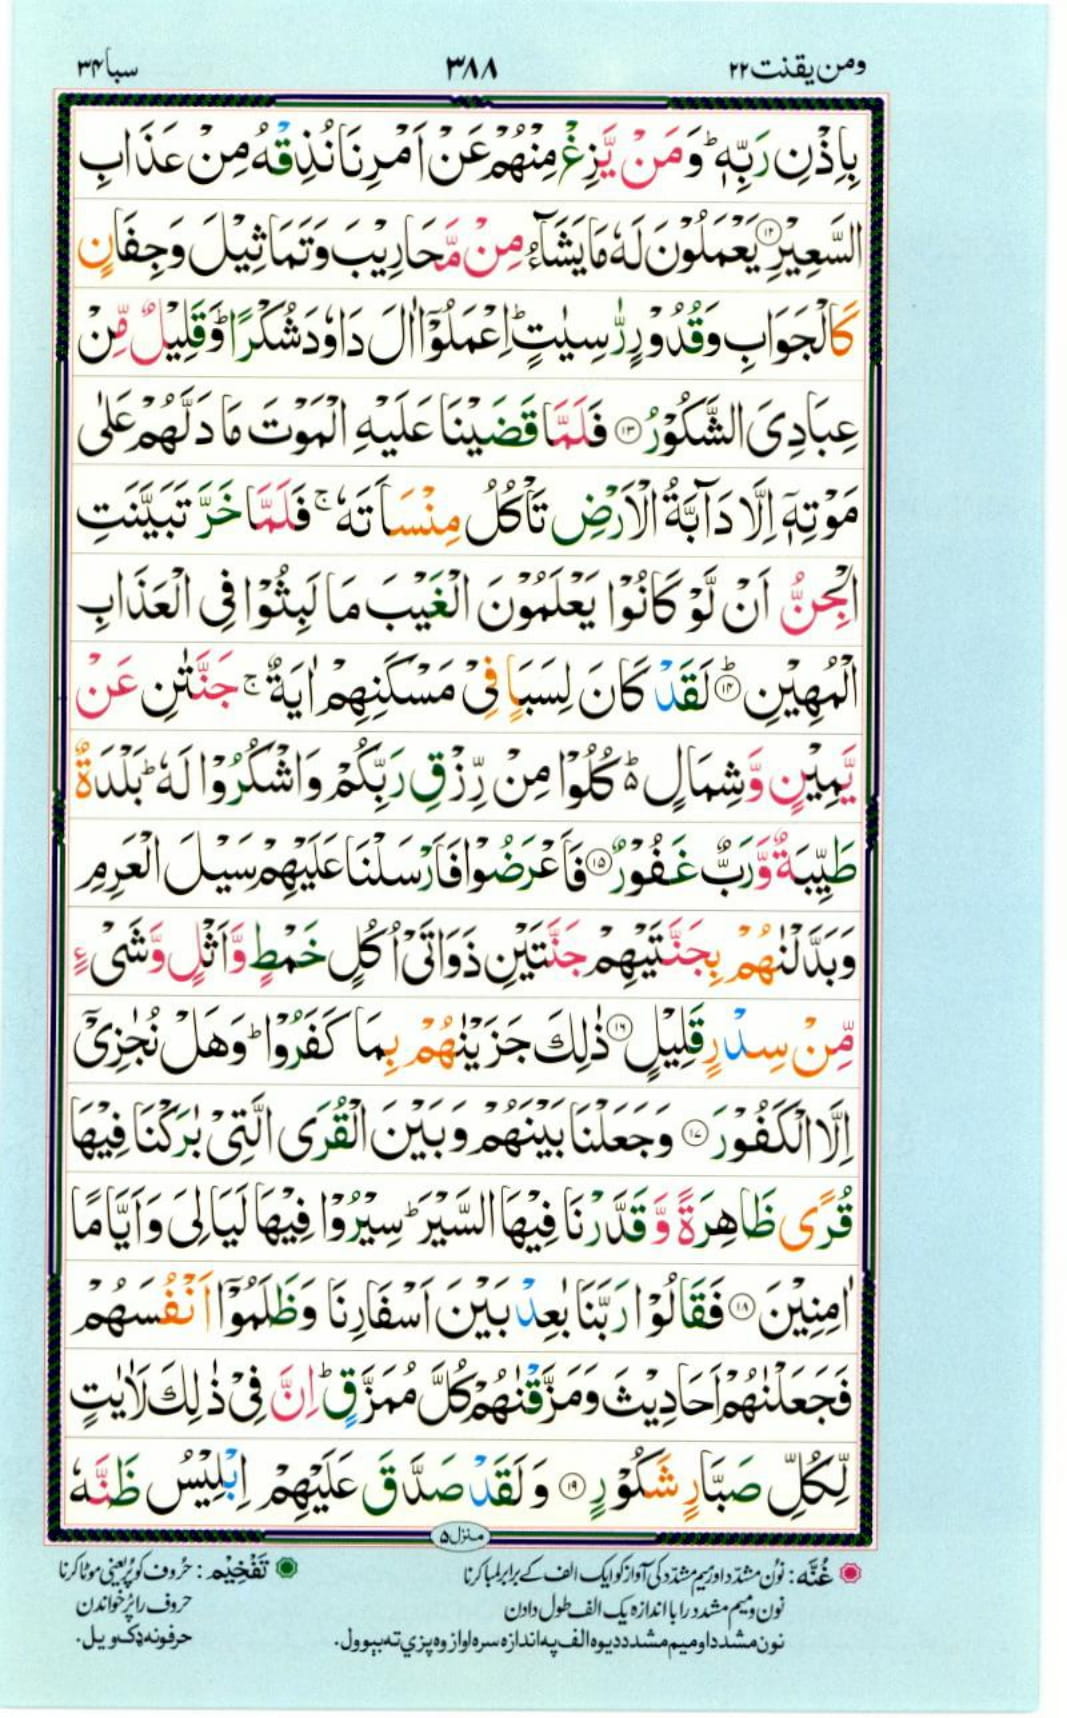 ومن يقنت ۲۲
۳۸۸
سبا ۳۴
بِاِذۡنِ رَبِّهٖ ؕ وَ مَنۡ يَّزِغۡ مِنۡهُمۡ عَنۡ اَمۡرِنَا نُذِقۡهُ مِنۡ عَذَابِ
السَّعِيۡرِ ﴿۱۲﴾ يَعۡمَلُوۡنَ لَهٗ مَا يَشَآءُ مِنۡ مَّحَارِيۡبَ وَ تَمَاثِيۡلَ وَ جِفَانٍ
كَالۡجَوَابِ وَ قُدُوۡرٍ رّٰسِيٰتٍ ؕ اِعۡمَلُوۡۤا اٰلَ دَاوٗدَ شُكۡرًا ؕ وَ قَلِيۡلٌ مِّنۡ
عِبَادِىَ الشَّكُوۡرُ ﴿۱۳﴾ فَلَمَّا قَضَيۡنَا عَلَيۡهِ الۡمَوۡتَ مَا دَلَّهُمۡ عَلٰى
مَوۡتِهٖۤ اِلَّا دَآبَّةُ الۡاَرۡضِ تَاۡكُلُ مِنۡسَاَتَهٗ ۚ فَلَمَّا خَرَّ تَبَيَّنَتِ
الۡجِنُّ اَنۡ لَّوۡ كَانُوۡا يَعۡلَمُوۡنَ الۡغَيۡبَ مَا لَبِثُوۡا فِى الۡعَذَابِ
الۡمُهِيۡنِ ؕ﴿۱۴﴾ لَقَدۡ كَانَ لِسَبَاٍ فِىۡ مَسۡكَنِهِمۡ اٰيَةٌ ۚ جَنَّتٰنِ عَنۡ
يَّمِيۡنٍ وَّ شِمَالٍ ؕ۬ كُلُوۡا مِنۡ رِّزۡقِ رَبِّكُمۡ وَ اشۡكُرُوۡا لَهٗ ؕ بَلۡدَةٌ
طَيِّبَةٌ وَّ رَبٌّ غَفُوۡرٌ ﴿۱۵﴾ فَاَعۡرَضُوۡا فَاَرۡسَلۡنَا عَلَيۡهِمۡ سَيۡلَ الۡعَرِمِ
وَ بَدَّلۡنٰهُمۡ بِجَنَّتَيۡهِمۡ جَنَّتَيۡنِ ذَوَاتَىۡ اُكُلٍ خَمۡطٍ وَّ اَثۡلٍ وَّ شَىۡءٍ
مِّنۡ سِدۡرٍ قَلِيۡلٍ ﴿۱۶﴾ ذٰلِكَ جَزَيۡنٰهُمۡ بِمَا كَفَرُوۡا ؕ وَ هَلۡ نُجٰزِىۡۤ
اِلَّا الۡكَفُوۡرَ ﴿۱۷﴾ وَ جَعَلۡنَا بَيۡنَهُمۡ وَ بَيۡنَ الۡقُرَى الَّتِىۡ بٰرَكۡنَا فِيۡهَا
قُرًى ظَاهِرَةً وَّ قَدَّرۡنَا فِيۡهَا السَّيۡرَ ؕ سِيۡرُوۡا فِيۡهَا لَيَالِىَ وَ اَيَّامًا
اٰمِنِيۡنَ ﴿۱۸﴾ فَقَالُوۡا رَبَّنَا بٰعِدۡ بَيۡنَ اَسۡفَارِنَا وَ ظَلَمُوۡۤا اَنۡفُسَهُمۡ
فَجَعَلۡنٰهُمۡ اَحَادِيۡثَ وَ مَزَّقۡنٰهُمۡ كُلَّ مُمَزَّقٍ ؕ اِنَّ فِىۡ ذٰلِكَ لَاٰيٰتٍ
لِّكُلِّ صَبَّارٍ شَكُوۡرٍ ﴿۱۹﴾ وَ لَقَدۡ صَدَّقَ عَلَيۡهِمۡ اِبۡلِيۡسُ ظَنَّهٗ
منزل ۵
غُنّه : نون مشدّد اور میم مشدّد کی آواز کو ایک الف کے برابر لمبا کرنا
نون و میم مشدد را با اندازه یک الف طول دادن
نون مشدد او میم مشدد دیوه الف په اندازه سره اواز وه پزي ته بېوول.
تَفْخِیْم : حُروف کو پُر یعنی موٹا کرنا
حروف را پُر خواندن
حرفونه ډک ویل.